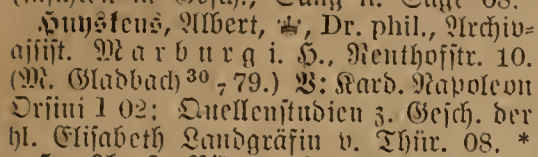 Huyskens, Albert, Dr. phil., Archiv-
assist. Marburg i. H., Renthofstr. 10.
(M. Gladbach 30/7 79.) V: Kard. Napoleon
Orsini I 02; Quellenstudien z. Gesch. der
hl. Elisabeth Landgräfin v. Thür. 08. *